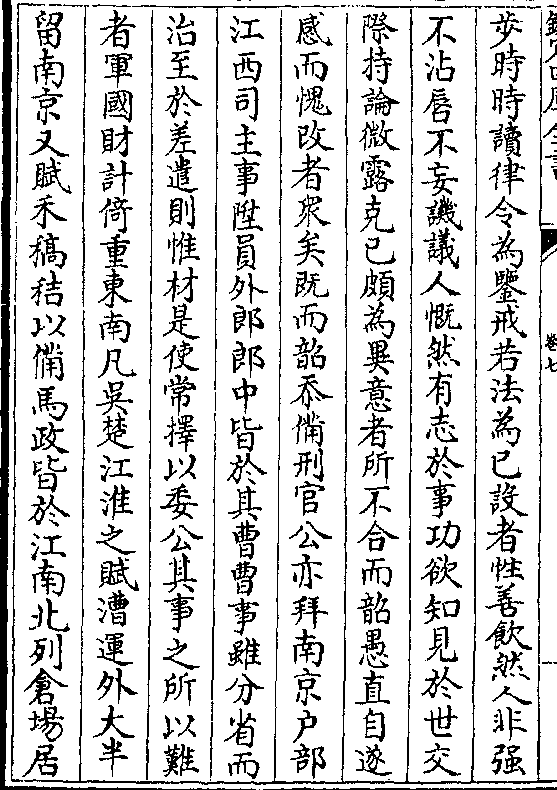 歩時時讀律令為鑒戒若法為已設者性善飲然人非强
不沾唇不妄譏議人慨然有志於事功欲知見於世交
際持論微露克已頗為異意者所不合而韶愚直自遂
感而愧改者衆矣既而韶忝備刑官公亦拜南京户部
江西司主事陞員外郎郎中皆於其曹曹事雖分省而
治至於差遣則惟材是使常擇以委公其事之所以難
者軍國財計倚重東南凡吳楚江淮之賦漕運外大半
留南京又賦禾稿秸以備馬政皆於江南北列倉場居
卷七